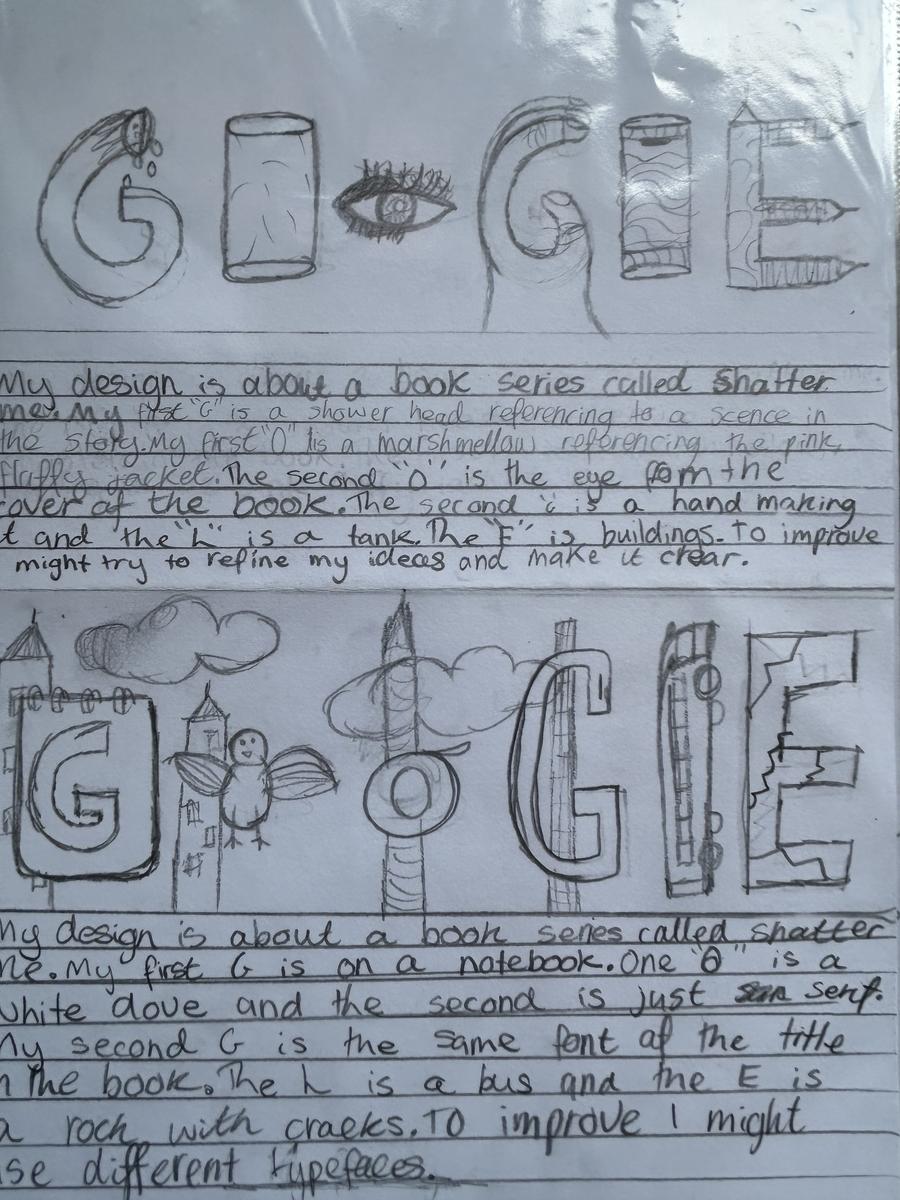 G G E
My design is about a book series called Shatter
me. My first "G" is a shower head referencing to a scence in
the story. My first "O" is a marshmellow referencing the pink
fluffy jacket. The second "O" is the eye from the
cover of the book. The second G is a hand making
t and the "L" is a tank. The "E" is buildings. To improve
might try to refine my ideas and make it clear.
G O G E
My design is about a book series called shatter
me. My first G is on a notebook. One "O" is a
white dove and the second is just serif.
My second G is the same font of the title
n the book. The L is a bus and the E is
a rock with cracks. To improve I might
use different typefaces.